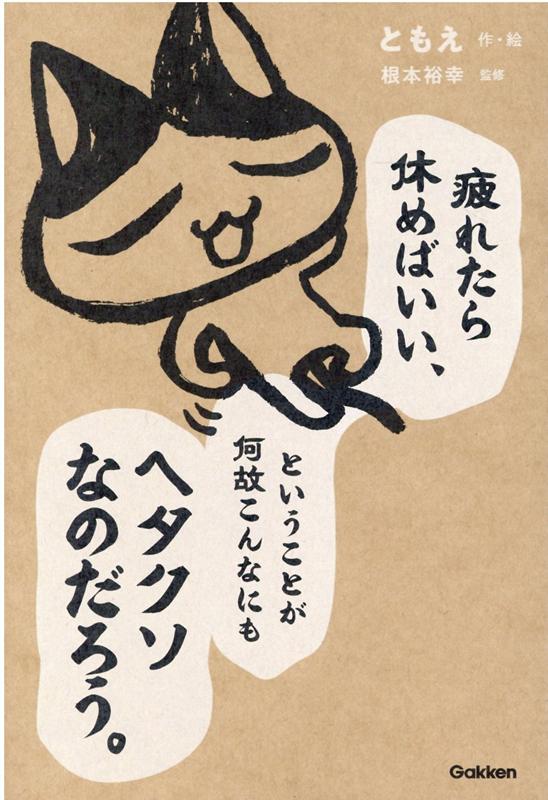 ともえ 作・絵
根本裕幸 監修
疲れたら
休めばいい、
ということが
何故こんなにも
ヘタクソ
なのだろう。
Gakken